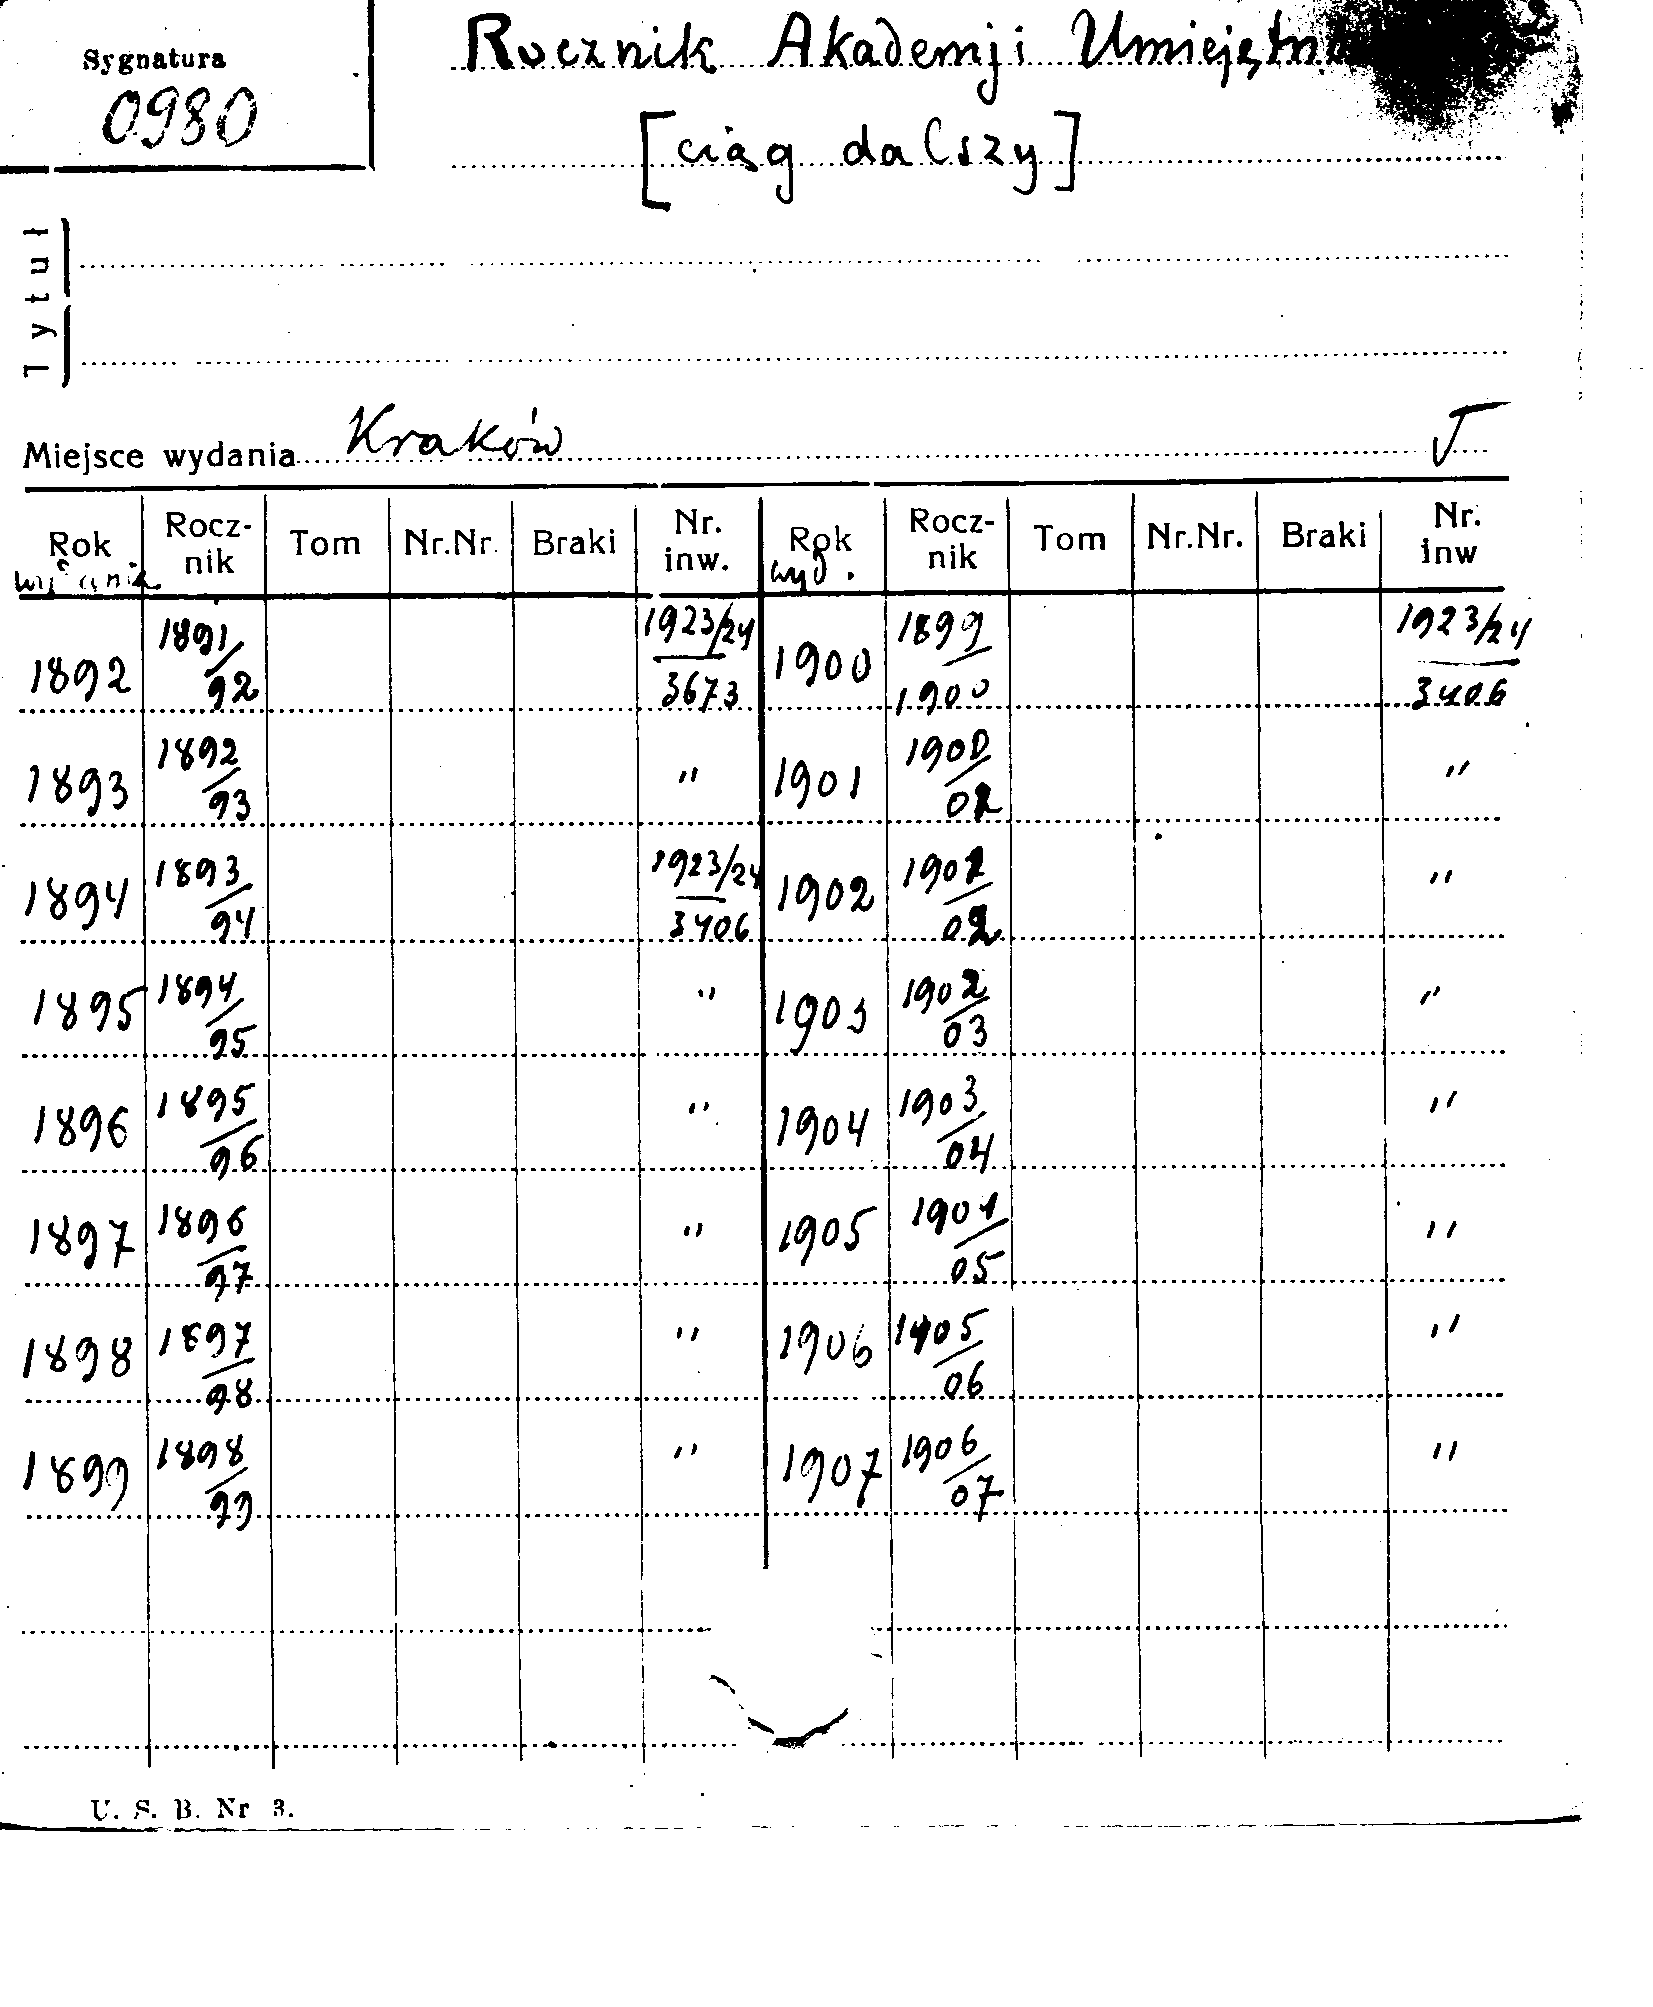 Sygnatura
0980
Rocznik Akademji
[ciąg dalszy]
Tytuł
Miejsce wydania Kraków
Rok wydania Rocz-nik Tom Nr.Nr. Braki Nr. inw. Rok wyd. Rocz-nik Tom Nr.Nr. Braki Nr. inw
1892 1891/92 1923/24 3673 1900 1899/1900 1923/24 3406
1893 1892/93 " 1901 1900/ "
1894 1893/94 1923/24 3406 1902 /02 "
1895 1894/95 " 1903 1902/03 "
1896 1895/96 " 1904 1903/04 "
1897 1896/97 " 1905 1904/05 "
1898 1897/98 " 1906 1905/06 "
1899 1898/99 " 1907 1906/07 "
U. S. B. Nr 3.